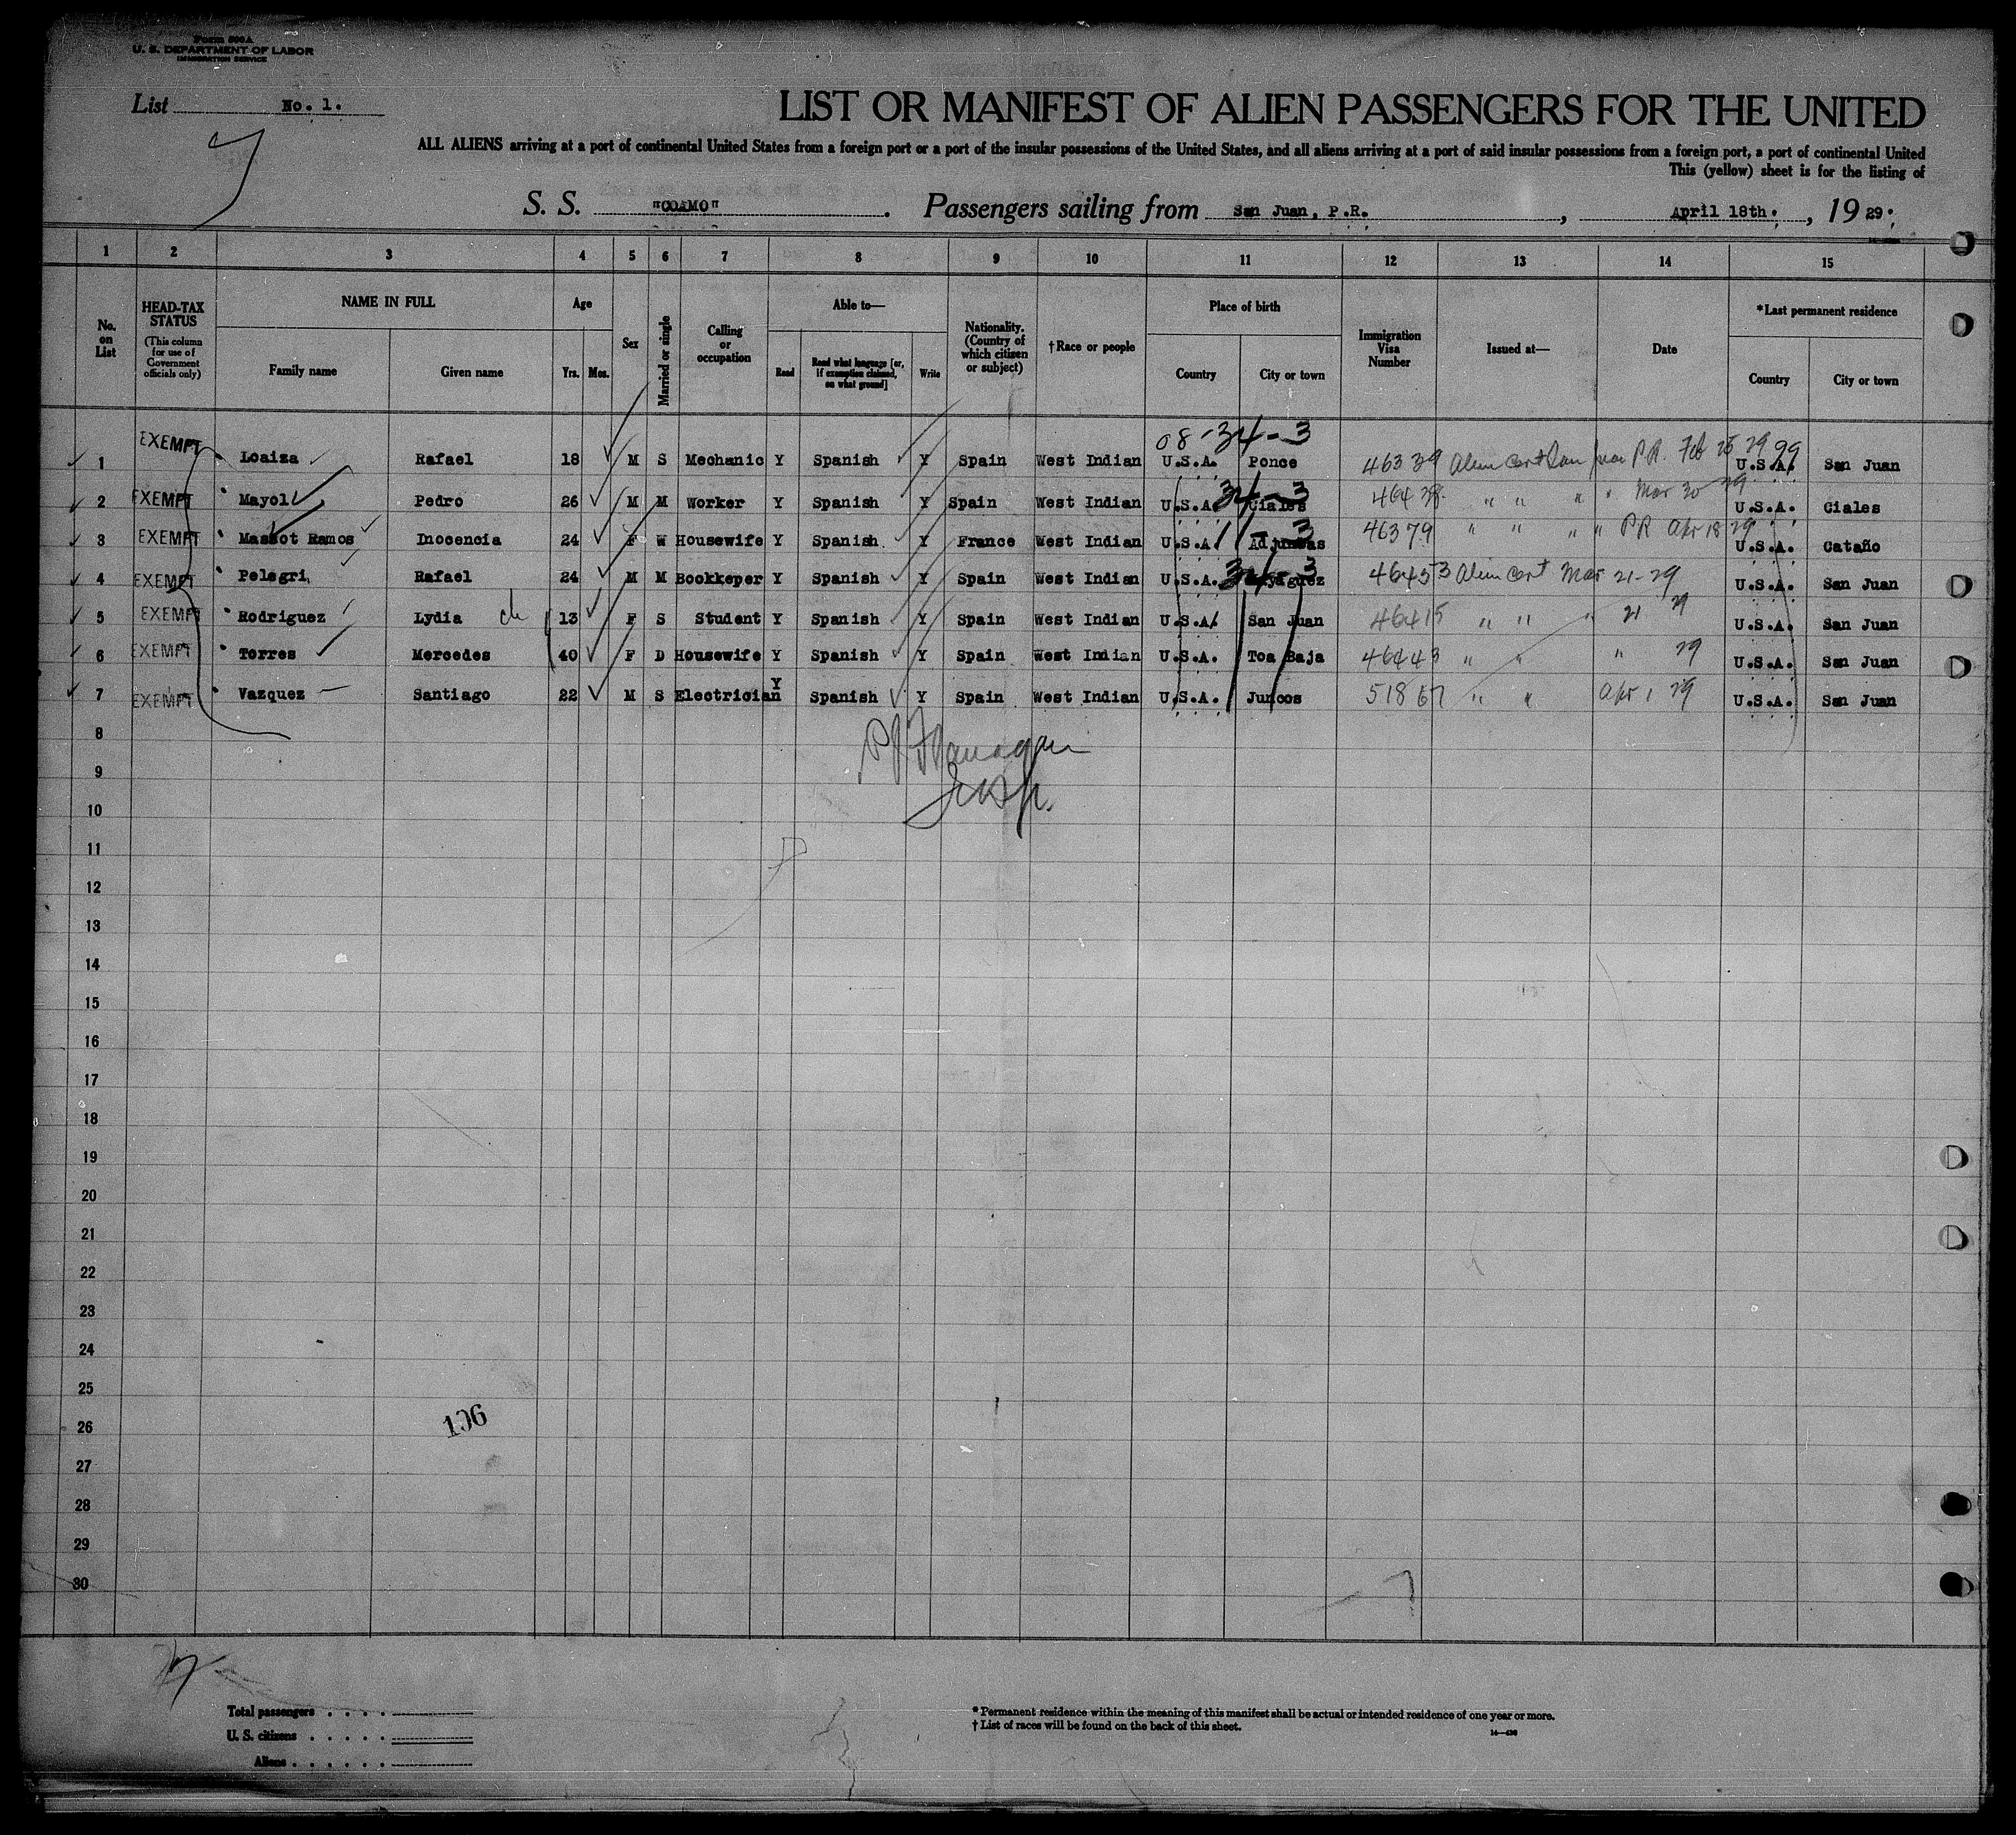 Form 500A
U. S. DEPARTMENT OF LABOR
IMMIGRATION SERVICE
List No. 1.
LIST OR MANIFEST OF ALIEN PASSENGERS FOR THE UNITED
ALL ALIENS arriving at a port of continental United States from a foreign port or a port of the insular possessions of the United States, and all aliens arriving at a port of said insular possessions from a foreign port, a port of continental United
This (yellow) sheet is for the listing of
S. S. "COAMO". Passengers sailing from San Juan, P.R., April 18th., 1929.
1 2 3 4 5 6 7 8 9 10 11 12 13 14 15
No. on List
HEAD-TAX STATUS
(This column for use of Government officials only)
NAME IN FULL
Family name Given name
Age
Yrs. Mos.
Sex
Married or single
Calling or occupation
Able to—
Read
Read what language [or, if exemption claimed, on what ground]
Write
Nationality. (Country of which citizen or subject)
†Race or people
Place of birth
Country City or town
Immigration Visa Number
Issued at—
Date
*Last permanent residence
Country City or town
08-34-3
1 EXEMPT Loaiza Rafael 18 M S Mechanic Y Spanish Y Spain West Indian U.S.A. Ponce 46339 Alien Cert San Juan P.R. Feb 25 29 99 U.S.A. San Juan
2 EXEMPT Mayol Pedro 26 M M Worker Y Spanish Y Spain West Indian U.S.A. 34-3 Ciales 46438 " " " " Mar 30 29 U.S.A. Ciales
3 EXEMPT Massot Ramos Inocencia 24 F W Housewife Y Spanish Y France West Indian U.S.A. 11-3 Adjuntas 46379 " " " " PR Apr 18 29 U.S.A. Cataño
4 EXEMPT Pelegri Rafael 24 M M Bookkeper Y Spanish Y Spain West Indian U.S.A. 34-3 Mayaguez 46453 Alien Cert Mar 21-29 U.S.A. San Juan
5 EXEMPT Rodriguez Lydia ch 13 F S Student Y Spanish Y Spain West Indian U.S.A. San Juan 46415 " " " 21 29 U.S.A. San Juan
6 EXEMPT Torres Mercedes 40 F D Housewife Y Spanish Y Spain West Indian U.S.A. Toa Baja 46443 " " " 29 U.S.A. San Juan
7 EXEMPT Vazquez Santiago 22 M S Electrician Y Spanish Y Spain West Indian U.S.A. Juncos 51867 " " Apr 1 29 U.S.A. San Juan
8
9
10
11
12
13
14
15
16
17
18
19
20
21
22
23
24
25
26
27
28
29
30
106
Total passengers
U. S. citizens
Aliens
*Permanent residence within the meaning of this manifest shall be actual or intended residence of one year or more.
†List of races will be found on the back of this sheet.